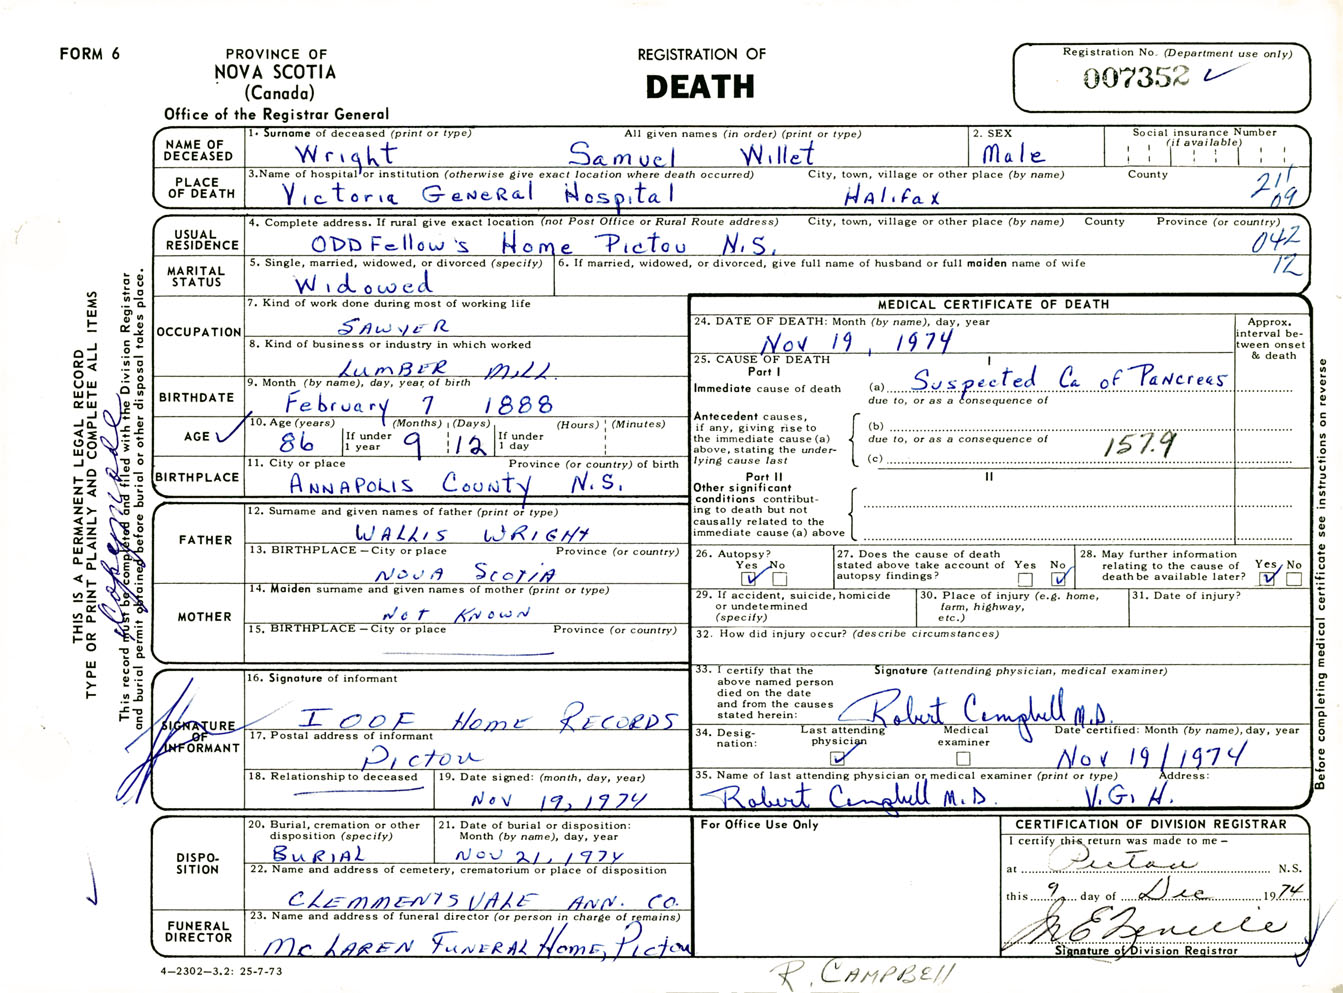 FORM 6
PROVINCE OF
NOVA SCOTIA
(Canada)
Office of the Registrar General
REGISTRATION OF
DEATH
Registration No. (Department use only)
007352
THIS IS A PERMANENT LEGAL RECORD
TYPE OR PRINT PLAINLY AND COMPLETE ALL ITEMS
This record must be completed and filed with the Division Registrar
and burial permit obtained before burial or other disposal takes place.
NAME OF DECEASED
1. Surname of deceased (print or type) All given names (in order) (print or type)
Wright Samuel Willet
2. SEX
Male
Social insurance Number
(if available)
PLACE OF DEATH
3. Name of hospital or institution (otherwise give exact location where death occurred) City, town, village or other place (by name) County
Victoria General Hospital Halifax
211
09
USUAL RESIDENCE
4. Complete address. If rural give exact location (not Post Office or Rural Route address) City, town, village or other place (by name) County Province (or country)
ODDFellow's Home Pictou N.S.
042
12
MARITAL STATUS
5. Single, married, widowed, or divorced (specify)
Widowed
6. If married, widowed, or divorced, give full name of husband or full maiden name of wife
OCCUPATION
7. Kind of work done during most of working life
SAWYER
8. Kind of business or industry in which worked
LUMBER MILL
BIRTHDATE
9. Month (by name), day, year of birth
February 7 1888
AGE
10. Age (years) (Months) (Days) (Hours) (Minutes)
86 If under 1 year 9 12 If under 1 day
BIRTHPLACE
11. City or place Province (or country) of birth
ANNAPOLIS COUNTY N.S.
FATHER
12. Surname and given names of father (print or type)
WALLIS WRIGHT
13. BIRTHPLACE – City or place Province (or country)
NOVA SCOTIA
MOTHER
14. Maiden surname and given names of mother (print or type)
NOT KNOWN
15. BIRTHPLACE – City or place Province (or country)
SIGNATURE OF INFORMANT
16. Signature of informant
IOOF HOME RECORDS
17. Postal address of informant
Pictou
18. Relationship to deceased
19. Date signed: (month, day, year)
Nov 19, 1974
DISPO-
SITION
20. Burial, cremation or other
disposition (specify)
BURIAL
21. Date of burial or disposition:
Month (by name), day, year
NOV 21, 1974
22. Name and address of cemetery, crematorium or place of disposition
CLEMMENTSVALE ANN. CO.
FUNERAL DIRECTOR
23. Name and address of funeral director (or person in charge of remains)
McLAREN FUNERAL Home, Pictou
4–2302–3.2: 25-7-73
MEDICAL CERTIFICATE OF DEATH
24. DATE OF DEATH: Month (by name), day, year
Nov 19, 1974
Approx.
interval be-
tween onset
& death
25. CAUSE OF DEATH
Part I
I
Immediate cause of death
(a) Suspected Ca of Pancreas
due to, or as a consequence of
Antecedent causes,
if any, giving rise to
the immediate cause (a)
above, stating the under-
lying cause last
(b)
due to, or as a consequence of
157.9
(c)
Part II
II
Other significant
conditions contribut-
ing to death but not
causally related to the
immediate cause (a) above
26. Autopsy?
Yes No
27. Does the cause of death
stated above take account of
autopsy findings?
Yes No
28. May further information
relating to the cause of
death be available later?
Yes No
29. If accident, suicide, homicide
or undetermined
(specify)
30. Place of injury (e.g. home,
farm, highway,
etc.)
31. Date of injury?
32. How did injury occur? (describe circumstances)
33. I certify that the
above named person
died on the date
and from the causes
stated herein:
Signature (attending physician, medical examiner)
Robert Campbell M.D.
34. Desig-
nation:
Last attending
physician
Medical
examiner
Date certified: Month (by name), day, year
Nov 19/1974
35. Name of last attending physician or medical examiner (print or type) Address:
Robert Campbell M.D. V.G.H.
Before completing medical certificate see instructions on reverse
For Office Use Only
CERTIFICATION OF DIVISION REGISTRAR
I certify this return was made to me –
at Pictou N.S.
this 9 day of Dec 1974
Signature of Division Registrar
R. CAMPBELL